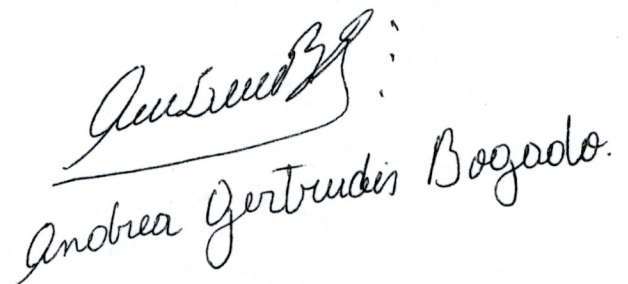 Andrea Gertrudis Bogado.